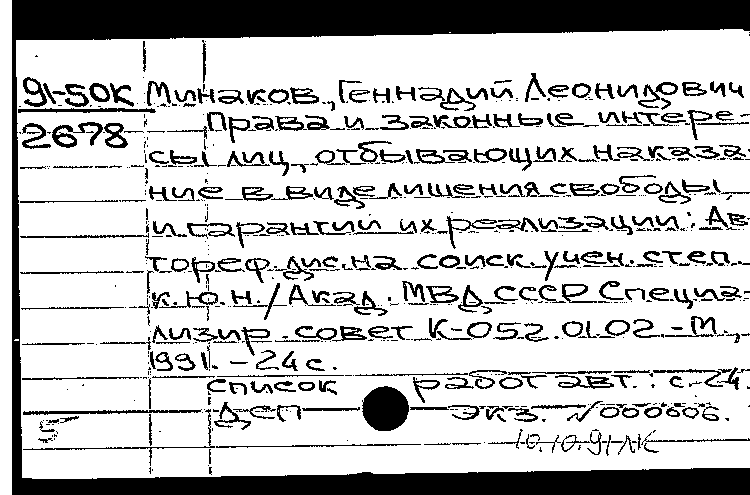 91-50К Минаков, Геннадий Леонидович
2678 Права и законные интере-
сы лиц, отбывающих наказа-
ние в виде лишения свободы,
и гарантии их реализации: Ав-
тореф. дис. на соиск. учен. степ.
к.ю.н./Акад. МВД СССР Специа-
лизир. совет К-052.01.02.-М.,
1991. - 24 с.
Список работ авт.: с. 24.
ДСП экз. №000606.
5
10.10.91 ЛК